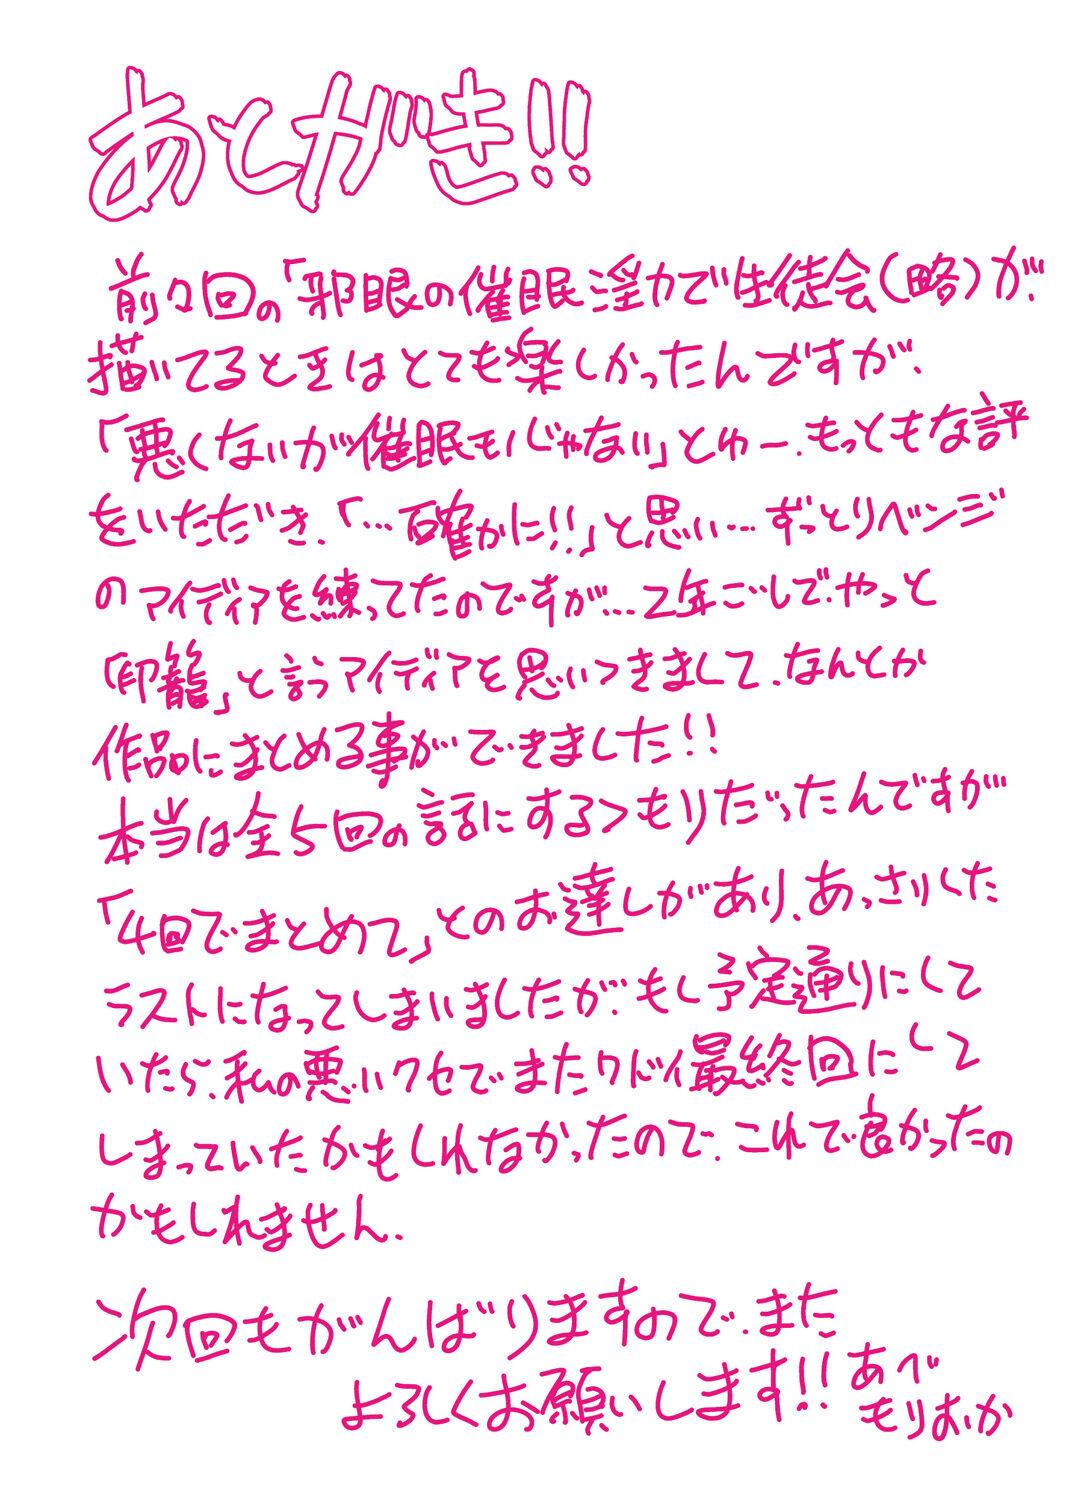 あとがき!!
前々回の「邪眼の催眠淫力で生徒会(略)が、
描いてるときはとても楽しかったんですが、
「悪くないが催眠モノじゃない」とゆー、もっともな評
をいただき、「…確かに!!」と思い…ずっとリベンジ
のアイディアを練ってたのですが…2年ごしで、やっと
「印籠」と言うアイディアを思いつきまして、なんとか
作品にまとめる事ができました!!
本当は全5回の話にするつもりだったんですが
「4回でまとめて」とのお達しがあり、あっさりした
ラストになってしまいましたが、もし予定通りにして
いたら、私の悪いクセでまたクドイ最終回にして
しまっていたかもしれなかったので、これで良かったの
かもしれません。
次回もがんばりますので、また
よろしくお願いします!!
あべ
もりおか